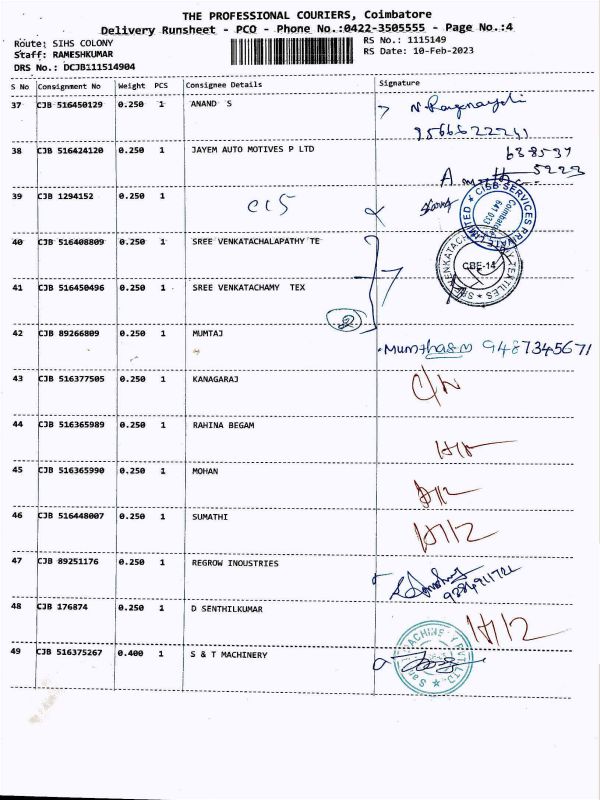 THE PROFESSIONAL COURIERS, Coimbatore
Delivery Runsheet - PCO - Phone No.:0422-3505555 - Page No.:4
Route: SIHS COLONY RS No.: 1115149
Staff: RAMESHKUMAR RS Date: 10-Feb-2023
DRS No.: DCJB111514904
S No Consignment No Weight PCS Consignee Details Signature
37 CJB 516450129 0.250 1 ANAND S
38 CJB 516424120 0.250 1 JAYEM AUTO MOTIVES P LTD
39 CJB 1294152 0.250 1 CIS
CISB SERVICES PRIVATE LIMITED
Coimbatore
641 033
40 CJB 516408809 0.250 1 SREE VENKATACHALAPATHY TE
CBE-14
41 CJB 516450496 0.250 1 SREE VENKATACHAMY TEX
2
42 CJB 89266809 0.250 1 MUMTAJ
9487345671
43 CJB 516377505 0.250 1 KANAGARAJ
44 CJB 516365989 0.250 1 RAHINA BEGAM
45 CJB 516365990 0.250 1 MOHAN
46 CJB 516448007 0.250 1 SUMATHI
47 CJB 89251176 0.250 1 REGROW INDUSTRIES
48 CJB 176874 0.250 1 D SENTHILKUMAR
49 CJB 516375267 0.400 1 S & T MACHINERY